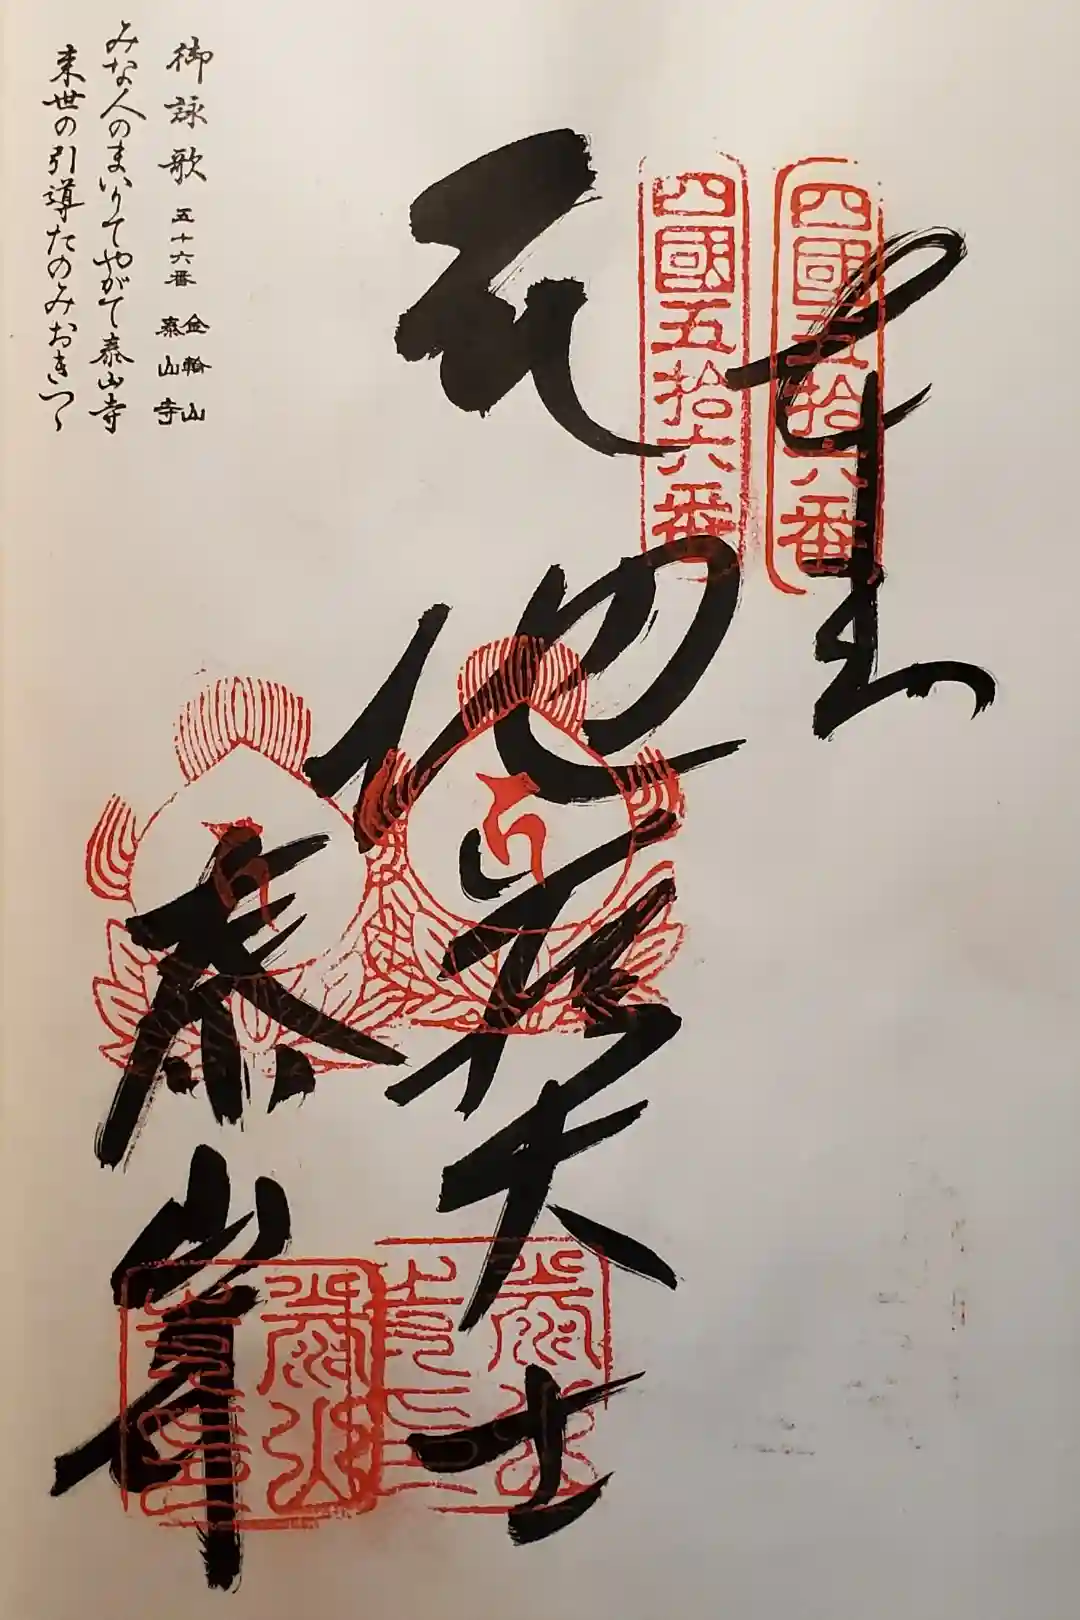 四國五拾六番
四國五拾六番
地蔵大士
泰山寺
御詠歌 五十六番 金輪山 泰山寺
みな人のまいりてやがて泰山寺
来世の引導たのみおきつゝ